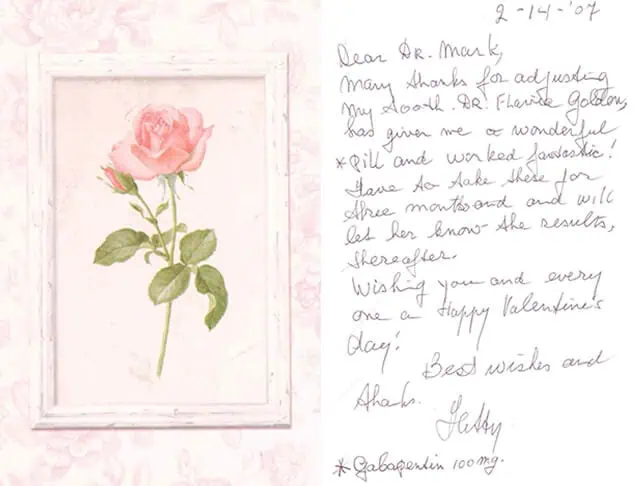 2-14-'07
Dear DR. Mark,
Many thanks for adjusting
my tooth. DR. Flavia Golden,
has given me a wonderful
*Pill and worked fantastic!
Have to take these for
three months and and will
let her know the results,
thereafter.
Wishing you and every
one a Happy Valentine's
day!
Best wishes and
thanks.
Hetty
*Gabapentin 100 mg.